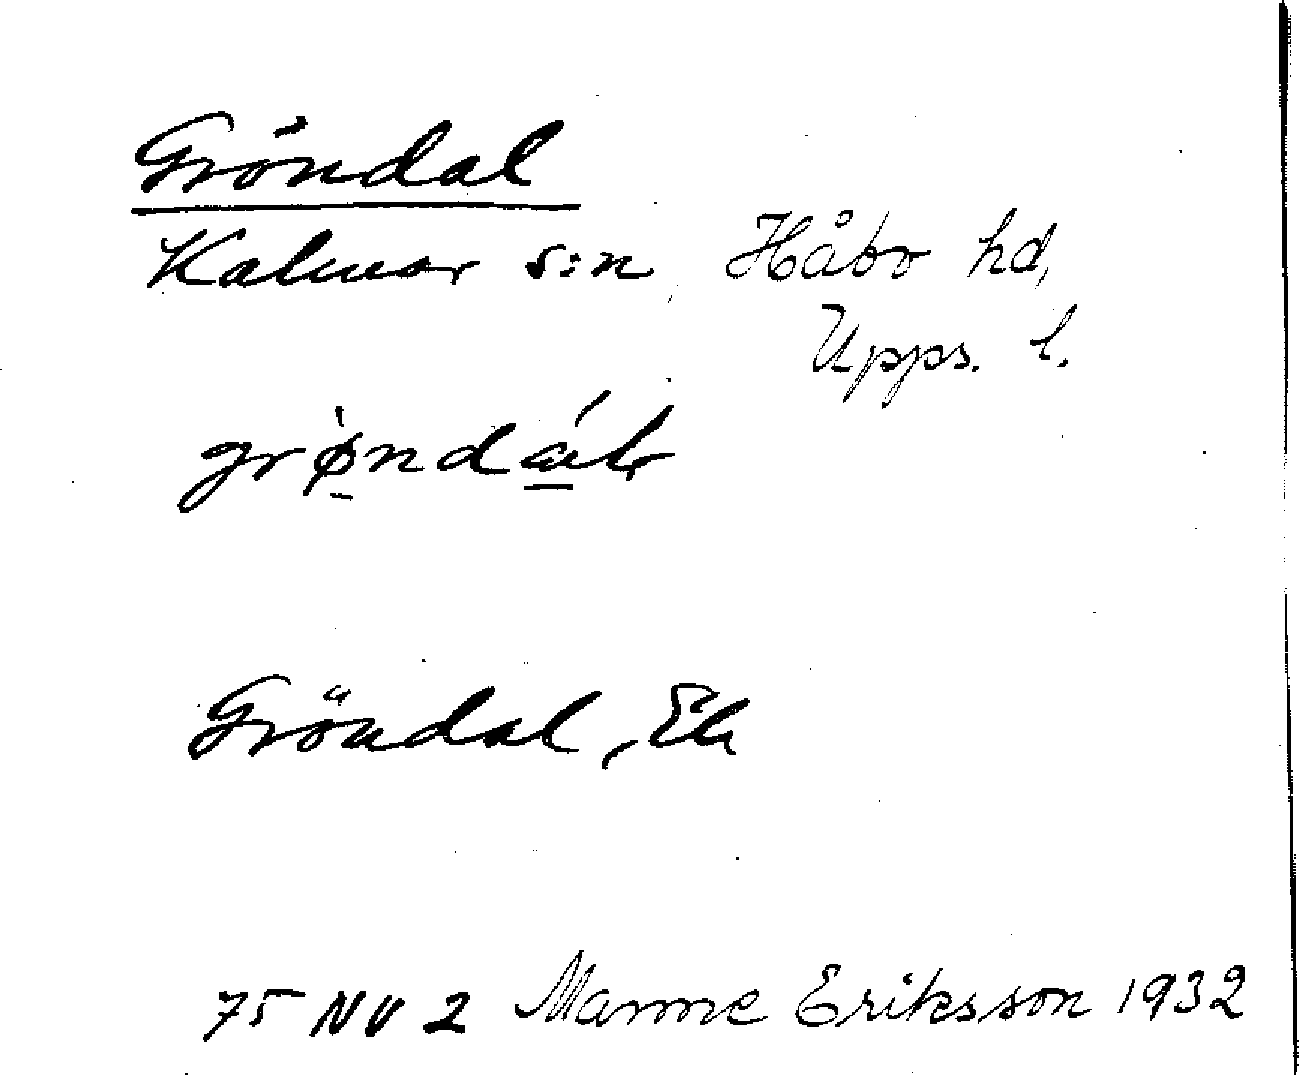 Gröndal
Kalmar s:n, Håbo hd,
Upps. l.
grø̀ndál
Gröndal, Ek
75 NV 2 Manne Eriksson 1932